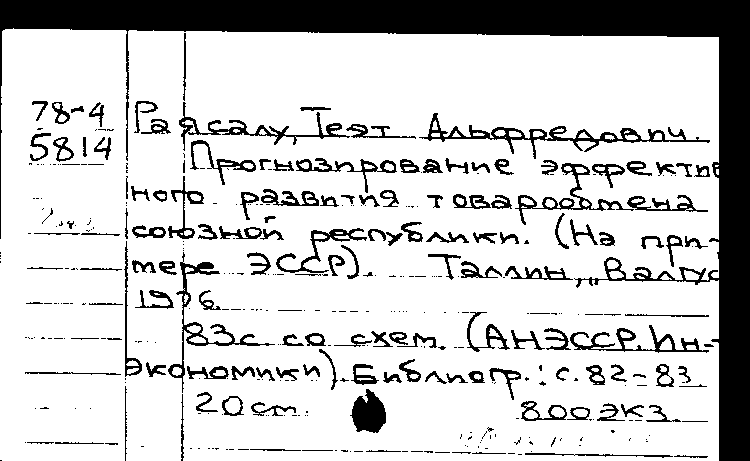 78-4
5814
Раясалу, Теэт Альфредович.
Прогнозирование эффектив
ного развития товарообмена
союзной республики. (На при-
мере ЭССР). Таллин, „Валгус
1976.
83с со схем. (АН ЭССР. Ин-т
экономики). Библиогр.: с. 82-83.
20 cm. 800 экз.